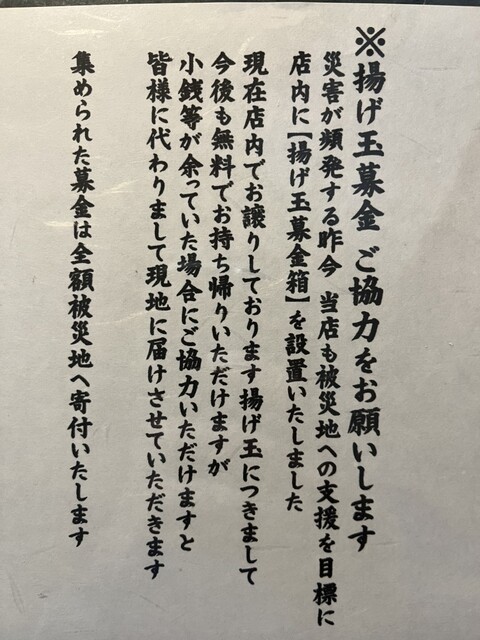 ※揚げ玉募金 ご協力をお願いします
災害が頻発する昨今 当店も被災地への支援を目標に
店内に【揚げ玉募金箱】を設置いたしました
現在店内でお譲りしております揚げ玉につきまして
今後も無料でお持ち帰りいただけますが
小銭等が余っていた場合にご協力いただけますと
皆様に代わりまして現地に届けさせていただきます
集められた募金は全額被災地へ寄付いたします